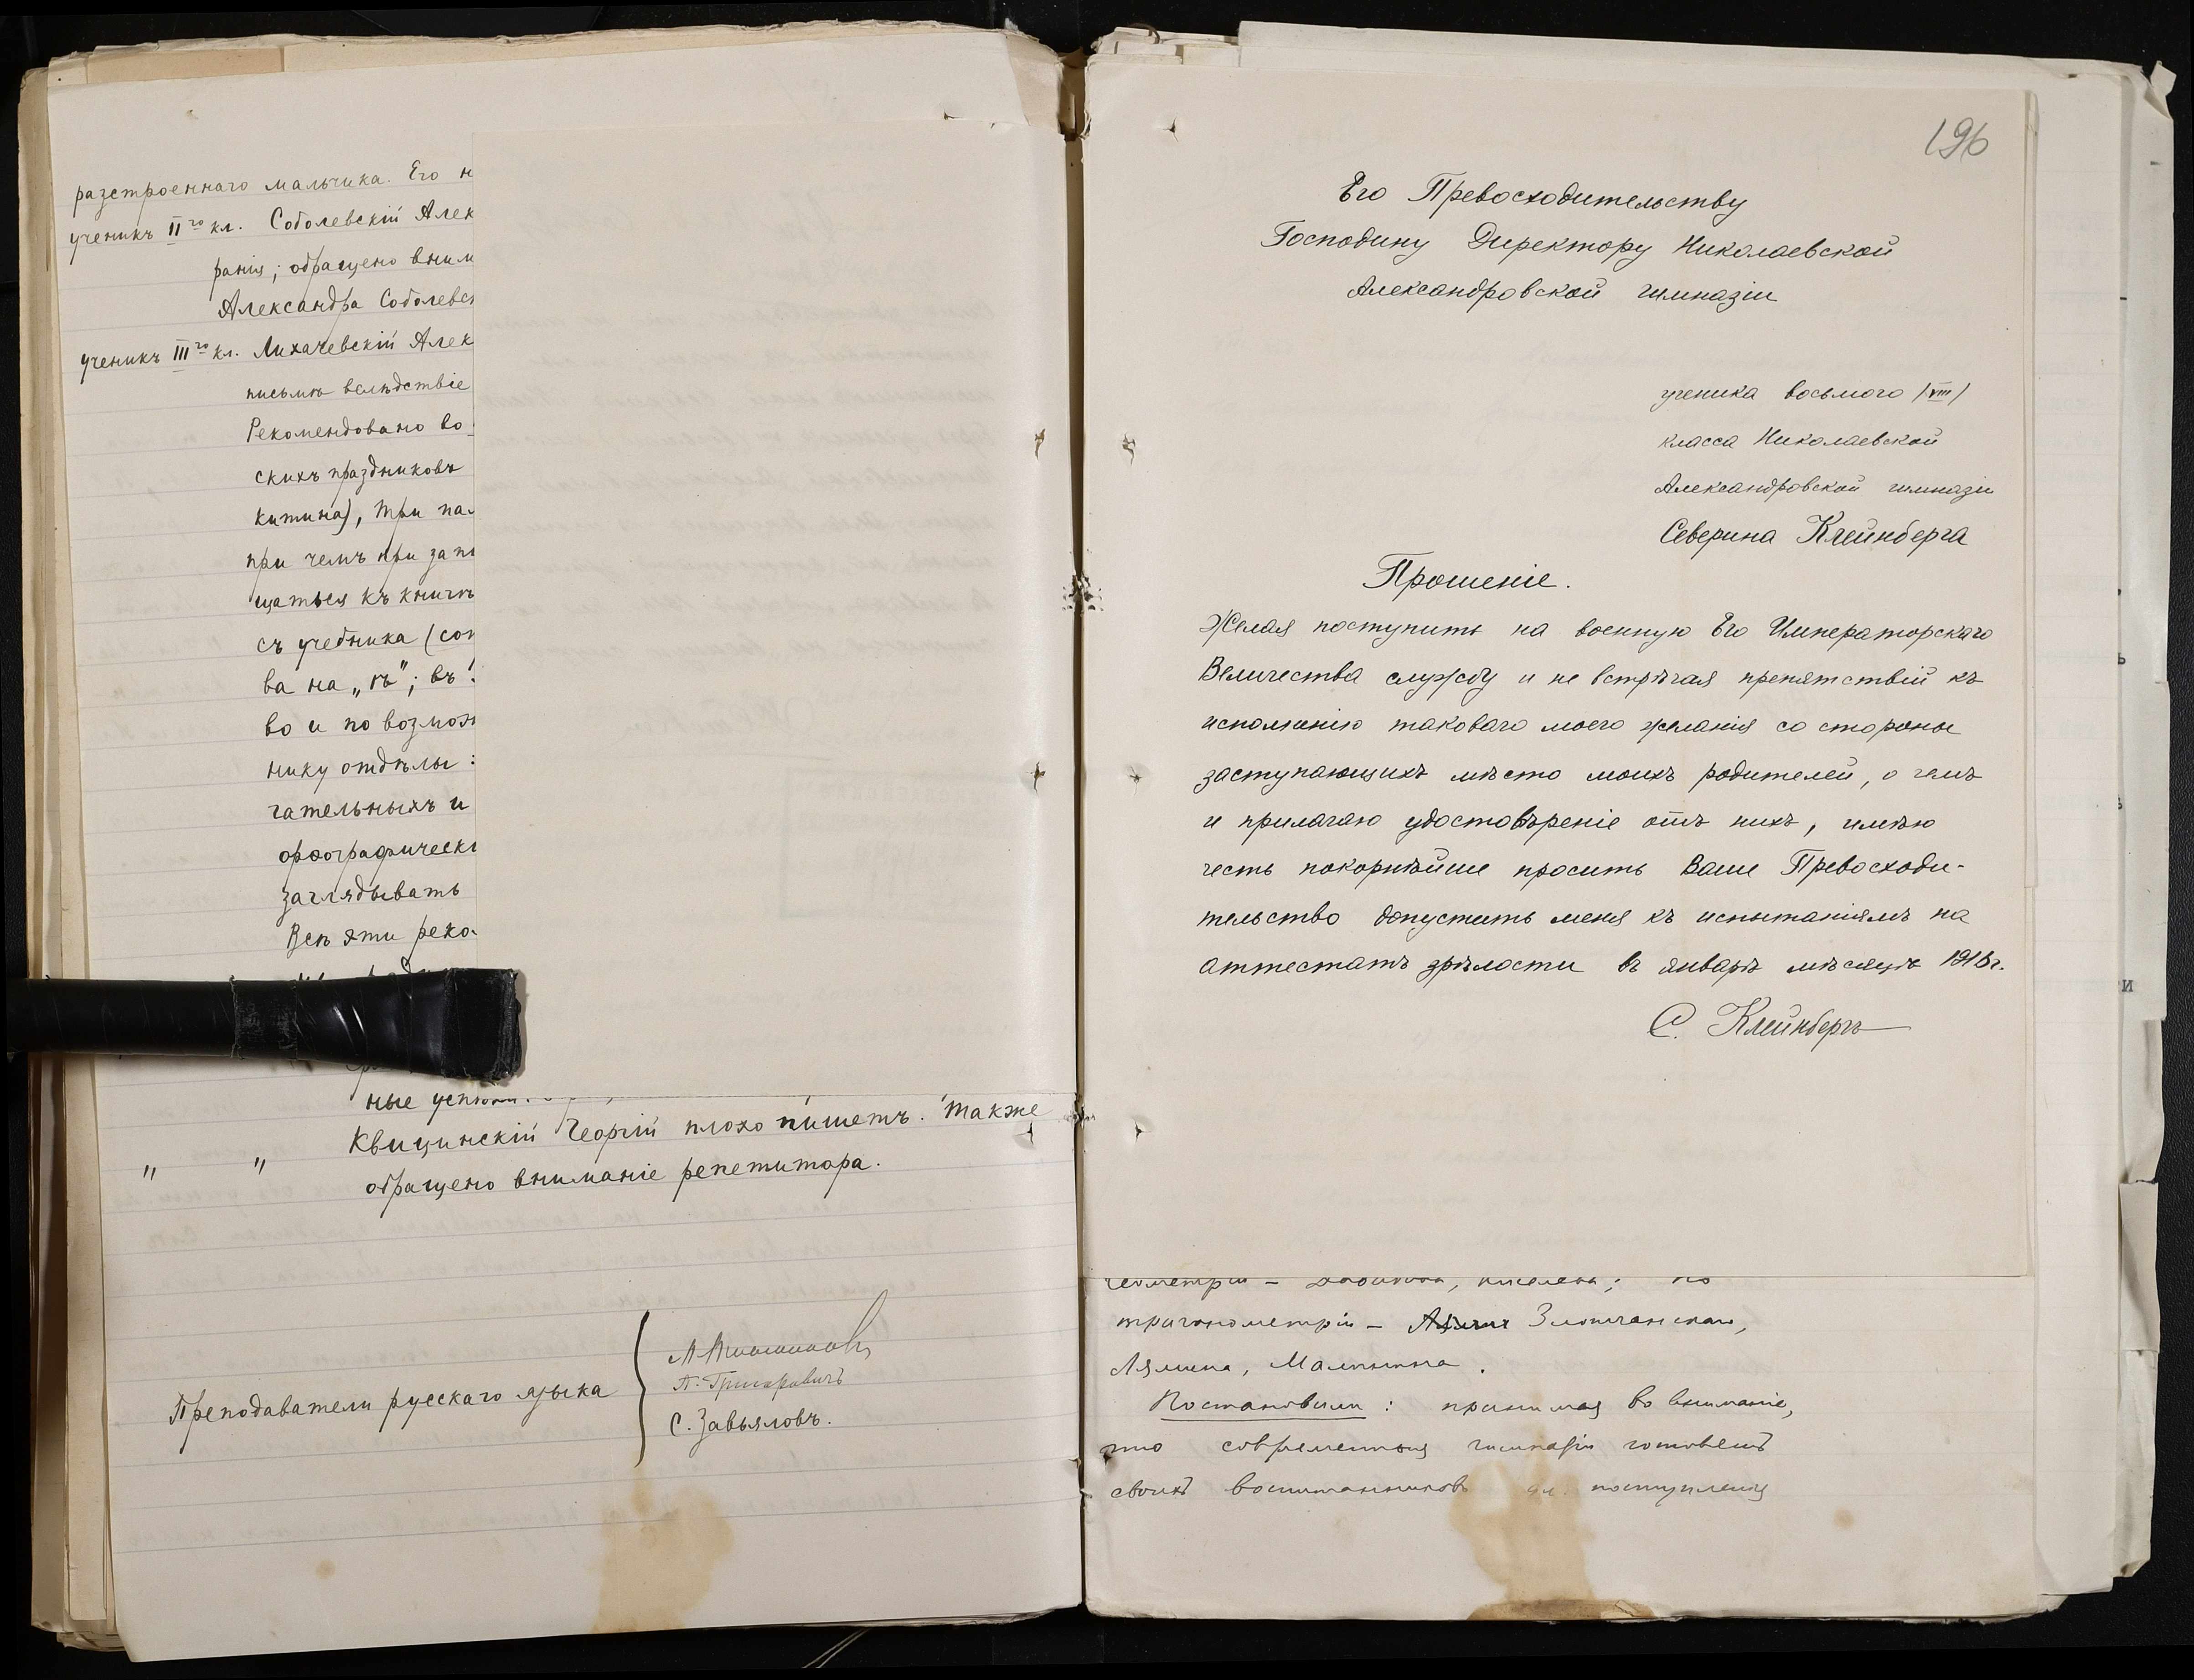 разстроеннаго мальчика. Его н
ученикъ IIго кл. Соболевскій Алек
ранія; обращено вним
Александра Соболевс
ученикъ IIIго кл. Лихачевскій Алек
письмѣ вслѣдствіе
Рекомендовано во
скихъ праздниковъ
китина), при па
при чемъ при запи
щаться къ книгѣ
съ учебника (сос
ва на „ѣ"; въ
во и по возмож
нику отдѣлы:
чательныхъ и
орѳографически
заглядывать
Всѣ эти реко-
ные
" " Квицинскій Георгій плохо пишетъ. Также
обращено вниманіе репетитора.
Преподаватели русскаго языка
П. Григоровичъ
С. Завьяловъ.
196
Его Превосходительству
Господину Директору Николаевской
Александровской гимназіи
ученика восьмого (VIII)
класса Николаевской
Александровской гимназіи
Северина Клейнберга
Прошеніе.
Желая поступить на военную Его Императорскаго
Величества службу и не встрѣчая препятствій къ
исполненію таковаго моего желанія со стороны
заступающихъ мѣсто моихъ родителей, о чемъ
и прилагаю удостовѣреніе отъ нихъ, имѣю
честь покорнѣйше просить Ваше Превосходи-
тельство допустить меня къ испытаніямъ на
аттестатъ зрѣлости въ январѣ мѣсяцѣ 1916г.
С. Клейнбергъ
геометріи – Давидова, Киселева; по
тригонометріи – Злотчанскаго,
Лямина, Малинина.
Постановили: принимая во вниманіе,
что современная гимназія готовитъ
своихъ воспитанниковъ для поступленія